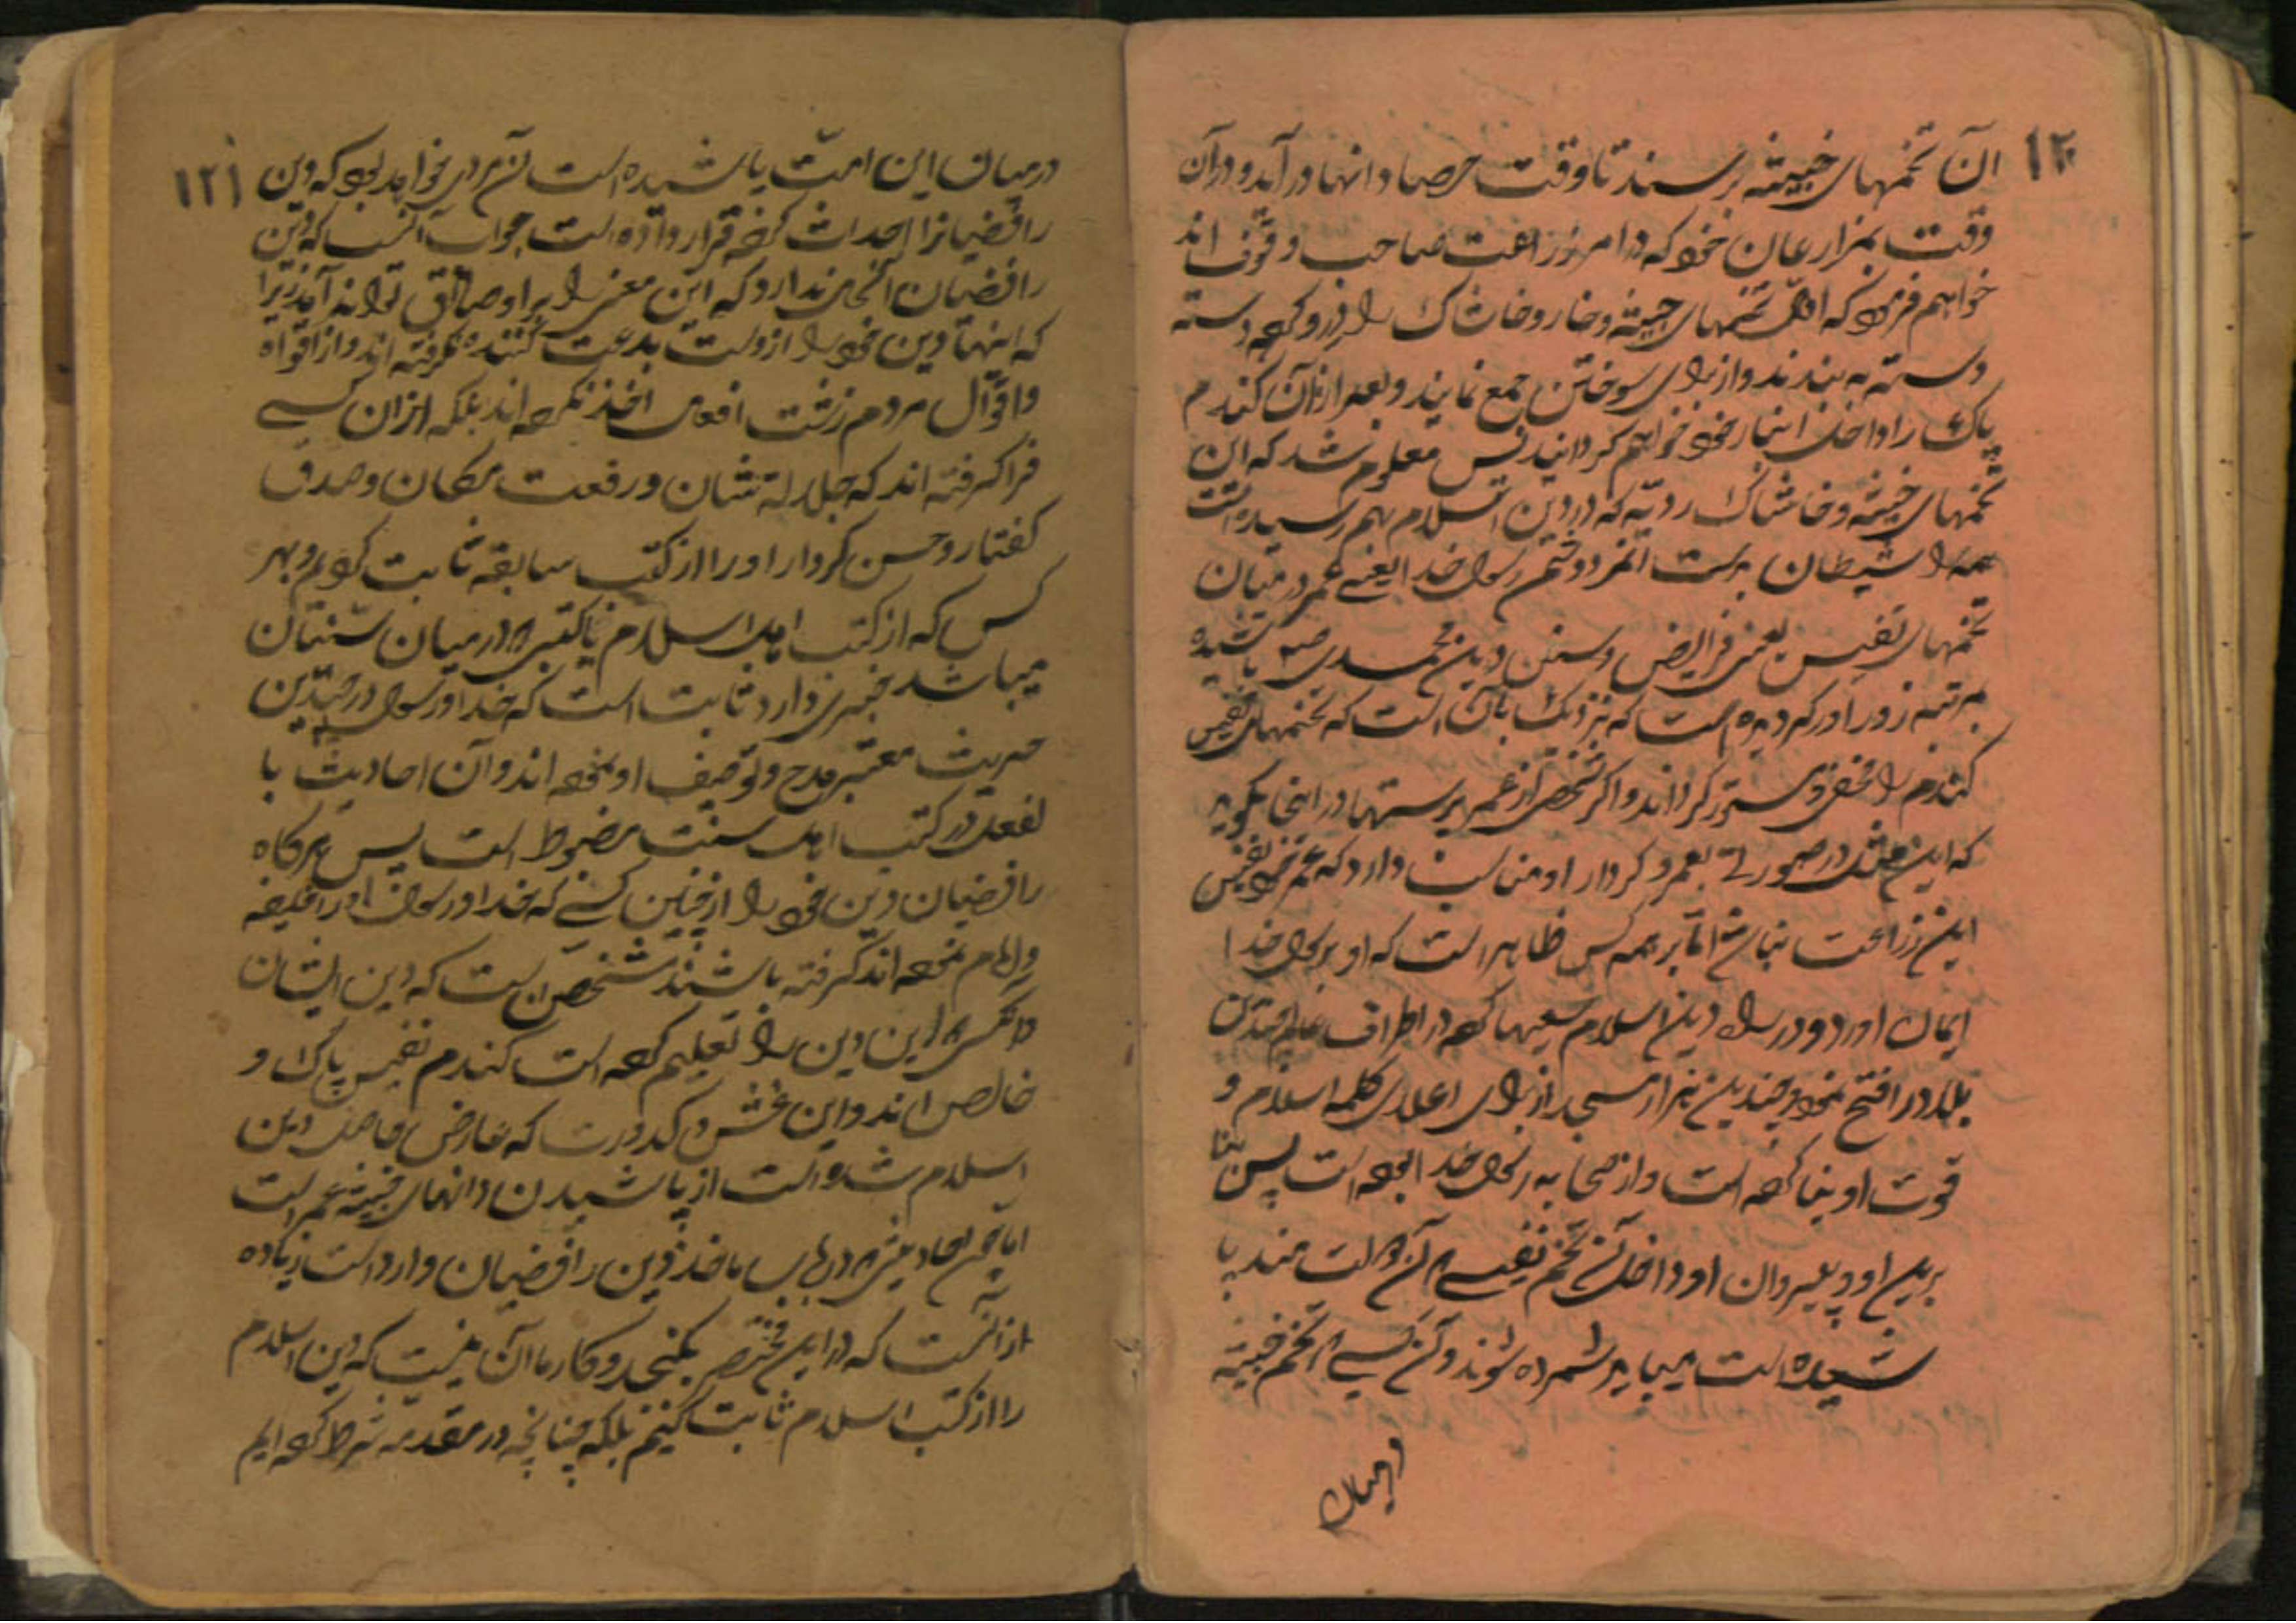 ۱۲۰
ان تخمهای خبیثه برسند تا وقت حصاد انها در آید و در آن
وقت بمزارعان خود که در امر زراعت صاحب وقوف اند
خواهم فرمود که اول تخمهای خبیثه و خار و خاشاک را درو کرده دسته
دسته به بندند و از برای سوختن جمع نمایند و بعد از آن کندم
پاک را داخل انبار خود خواهم کردانید پس معلوم شد که این
تخمهای خبیثه و خاشاک ردیه که در دین اسلام بهم رسیده است
همه را شیطان بدست آنمرد دشمن رسول خدا یعنے عمر در میان
تخمهای نفیس یعنی فرایض و سنن دین محمدی ص پاشیده
بمرتبه زور اور کردیده است که نزدیک بآن است که تخمهای نفیس
کندم را مخفی و مستور کرداند و اکر شخصی از عمر پرستها در اینجا بکوید
که این مثل در صورتے بعمر و کردار او مناسبت دارد که عمر خود نفیس
این زراعت نباشد اما بر همه کس ظاهر است که او برسول خدا
ایمان اورد و در راه دین اسلام سعیها کرده در اطراف عالم چندین
بلاد را فتح نمود و چندین هزار مسجد از برای اعلای کلمه اسلام و
قوت او بنا کرده است و از صحابه رسول خدا بوده است پس بنا
برین او و پیروان او داخل تخم نفیسے که آن دولتمند پا
شیده است میباید شمرده شوند و آن کسے که تخم خبیثه
درمیان
۱۲۱
درمیان این امت پاشیده است آن مردی خواهد بود که دین
رافضیانرا احداث کرده قرار داده است جواب آنست که دین
رافضیان انجا ندارد که این معنی را بر او صادق تواند آمد زیرا
که اینها دین خود را از دست بدعت کننده نکرفته اند و از افواه
و اقوال مردم زشت افعال اخذ نکرده اند بلکه از آن کسے
فرا کرفته اند که جلالة شان و رفعت مکان و صدق
کفتار و حسن کردار او را از کتب سابقه ثابت کردیم و بهر
کس که از کتب اهل اسلام یا کتبی که درمیان سنیان
میباشد خبری دارد ثابت است که خدا و رسول در چندین
حدیث معتبر مدح و توصیف او نموده اند و آن احادیث با
لفعل در کتب اهل سنت مضبوط است پس هرکاه
رافضیان دین خود را از چنین کسے که خدا و رسول او را خلیفه
و امام نموده اند کرفته باشند مشخص است که دین ایشان
و انکس که این دین را تعلیم کرده است کندم نفیس پاک و
خالص اند و این غش و کدورت که عارض حاصل دین
اسلام شده است از پاشیدن دانهای خبیثه عمر است
اما چون احادیثی که در باب ماخذ دین رافضیان وارد است زیاده
از آنست که در این مختصر بکنجد و کار ما آن نیست که دین اسلام
را از کتب اسلام ثابت کنیم بلکه چنانچه در مقدمه شرط کرده ایم